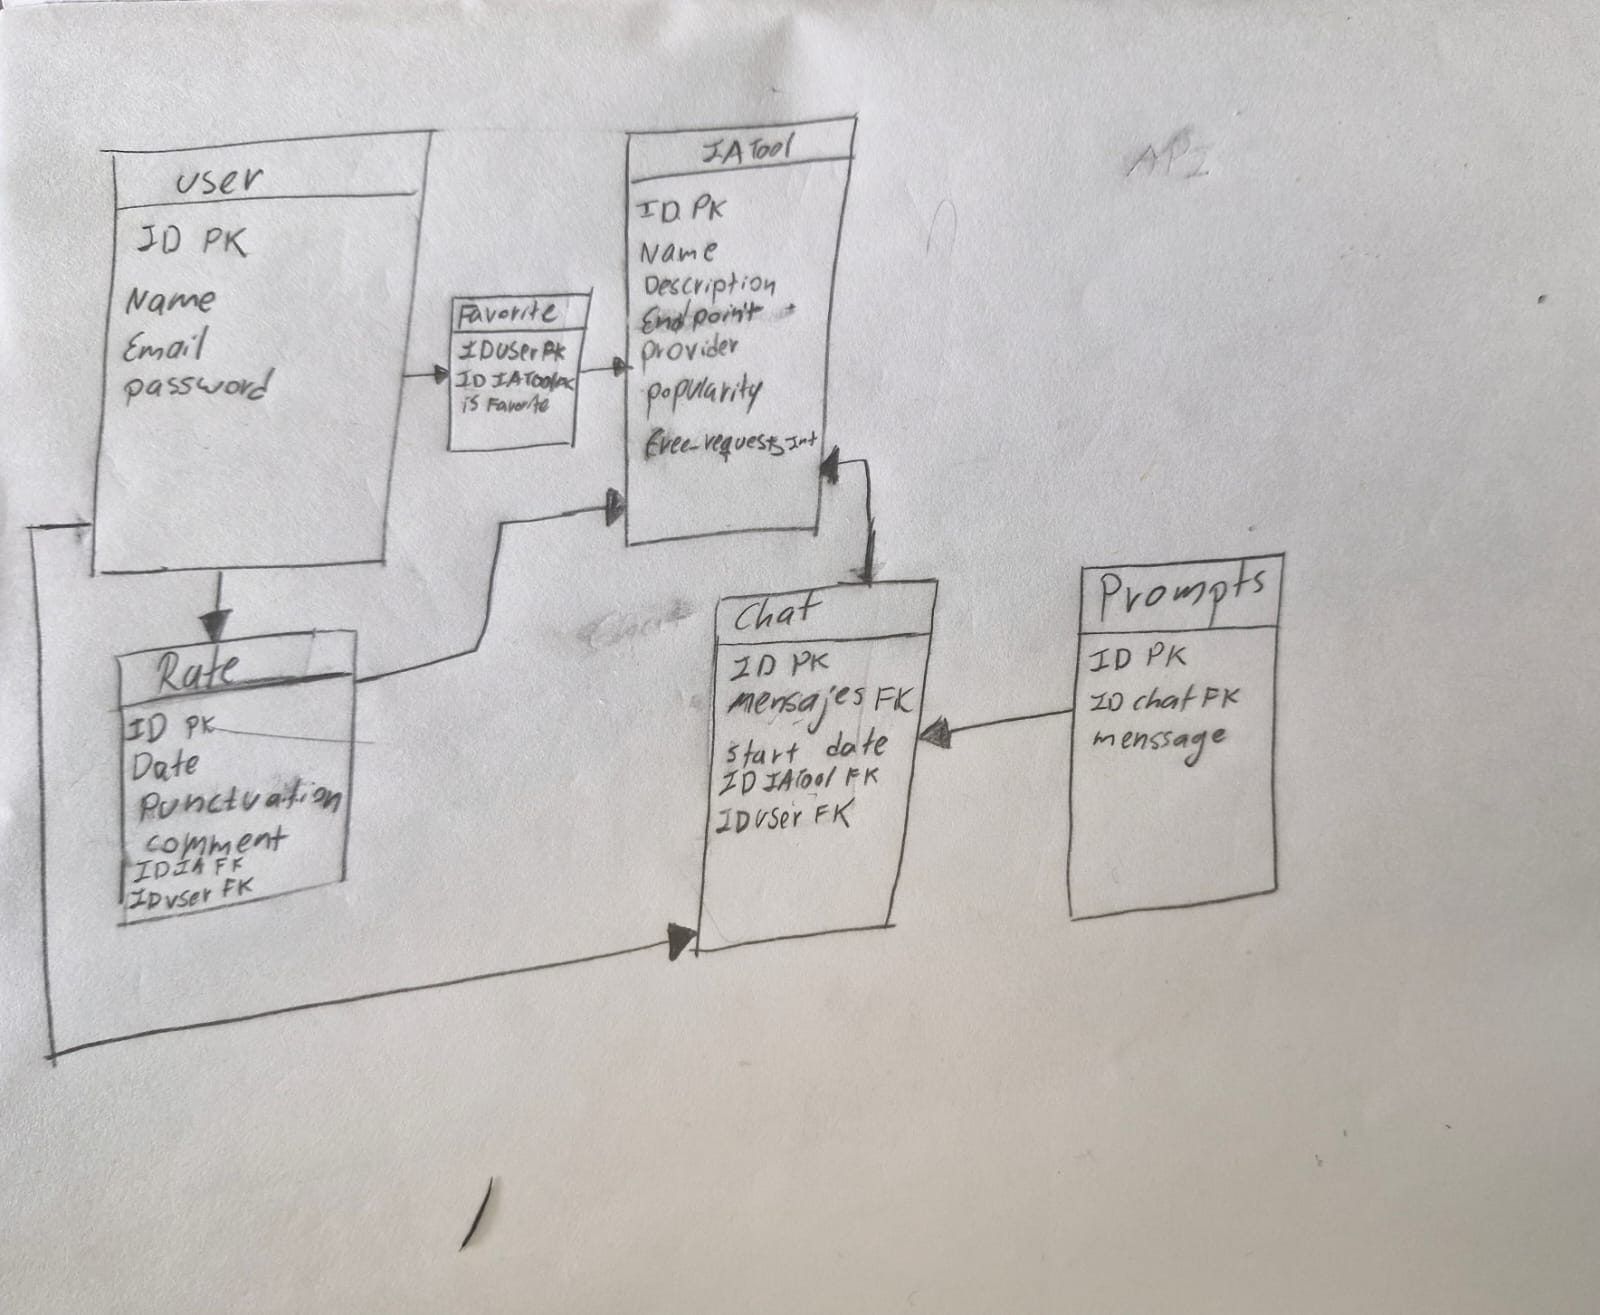 user
ID PK
Name
Email
password
Favorite
IDUser FK
ID IATool
is Favorite
IATool
ID PK
Name
Description
Endpoint
provider
popularity
Free_requests Int
API
Rate
ID PK
Date
Punctuation
comment
ID IA FK
IDuser FK
Chat
Chat
ID PK
mensajes FK
start date
ID IATool FK
IDuser FK
Prompts
ID PK
ID chat FK
menssage